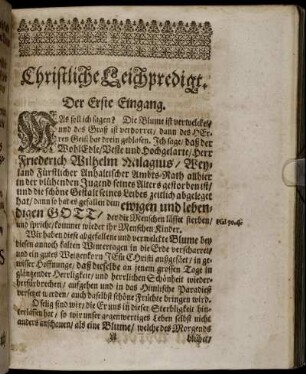 Christliche Leichpredigt.
Der Erste Eingang.
WAs soll ich sagen? Die Blume ist verwelcket/
und das Graß ist verdorret/ dann des HEr-
ren Geist hat drein geblasen. Ich sage/ daß der
WohlEdle/Veste und Hochgelarte/ Herr
Friederich Wilhelm Milagius, Wey-
land Fürstlicher Anhaltischer Ambts-Rath anhier
in der blühenden Jugend seines Alters gestorben ist/
und die schöne Gestalt seines Leibes zeitlich abgeleget
hat/ dann so hat es gefallen dem ewigen und leben-
digen GOTT/ der die Menschen lässet sterben/
und spricht/ kommet wieder ihr Menschen Kinder,
Wir haben diese abgefallene und verwelckte Blume bey
diesen annoch kalten Wintertagen in die Erde verscharret/
und ein gutes Weitzenkorn JEsu Christi außgesäet/ in ge-
wisser Hoffnung/ daß dieselbe an jenem grossen Tage in
gläntzender Herrligkeit/ und herrlichen Schönheit wieder-
herfürbrechen/ aufgehen und in das Himlische Paradies
versetzet werden/ auch daselbst schöne Früchte bringen wird.
O selig sind wir/ die Er uns in dieser Sterbligkeit hin-
terlassen hat/ so wir unser gegenwertiges Leben selbst nicht
anders anschauen/ als eine Blume/ welche des Morgends
blühet/